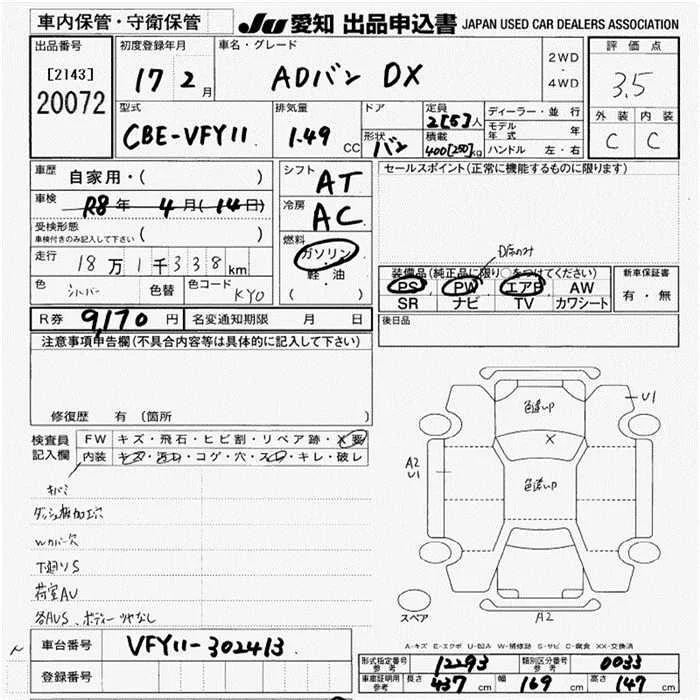 車内保管・守衛保管
JU 愛知 出品申込書 JAPAN USED CAR DEALERS ASSOCIATION
出品番号
[2143]
20072
初度登録年月
17 2 月
車名・グレード
ADバン DX
2WD
・
4WD
評価点
3.5
外装 内装
C C
型式
CBE-VFY11
排気量
1.49 CC
ドア
形状 バン
定員 2[5]人
積載 400[250]kg
ディーラー・並行
モデル年式 年
ハンドル 左・右
車歴 自家用・( )
車検 R8年 4月(14日)
受検形態
車検付きのみ記入して下さい ( )
走行 18万1千338km
色 シルバー 色替 色コード KY0
シフト AT
冷房 AC
燃料
ガソリン
・
軽・油
( )
セールスポイント(正常に機能するものに限ります)
装備品(純正品に限り○をつけてください)
PS PW エアB AW
SR ナビ TV カワシート
新車保証書
有・無
R券 9,170 円 名変通知期限 月 日
後日品
注意事項申告欄(不具合内容等は具体的に記入して下さい)
修復歴 有 (箇所 )
検査員記入欄
FW キズ・飛石・ヒビ割・リペア跡・X要
内装 キズ・汚れ・コゲ・穴・スレ・キレ・破レ
キバミ
Wカバー欠
下廻りS
荷室AU
色違いP
X
色違いP
U1
A2
U1
A2
スペア
A-キズ E-エクボ U-凹み W-補修跡 S-サビ C-腐食 XX-交換済
車台番号 VFY11-302413
登録番号
型式指定番号 参考 12293 類別区分番号 参考 0033
車庫証明用 参考 長さ 437 cm 幅 169 cm 高さ 147 cm